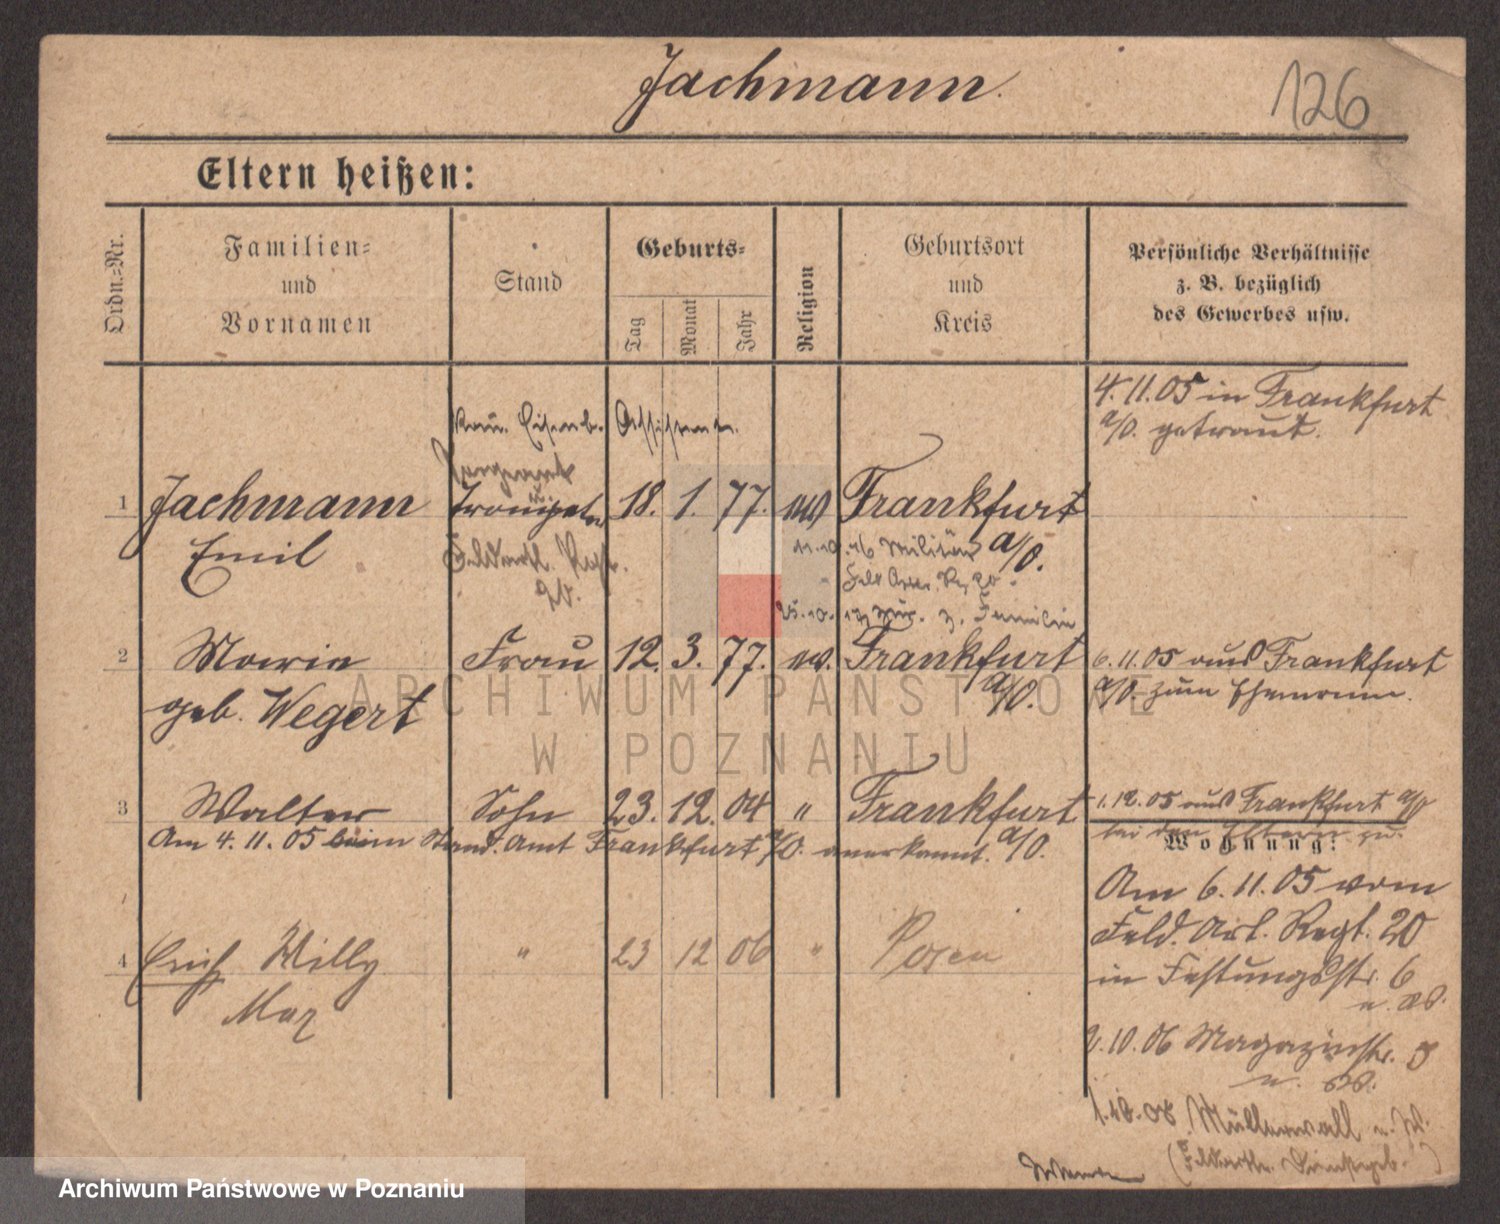 Jachmann.
126
Eltern heißen:
Ordn.-Nr.
Familien-
und
Vornamen
Stand
Geburts-
Tag
Monat
Jahr
Religion
Geburtsort
und
Kreis
Persönliche Verhältnisse
z. B. bezüglich
des Gewerbes usw.
4. 11. 05 in Frankfurt
a/O. getraut.
Eisenb. Assistent.
Sergeant
1 Jachmann Trompeter 18. 1. 77. ev Frankfurt
Emil a/O.
11.10. Militär
Feld Art. Reg 20.
25.10. zur. z. Familie
2 Marie Frau 12. 3. 77. ev. Frankfurt 6. 11. 05 aus Frankfurt
geb. Wegert a/O. a/O. zum Ehemann.
3 Walter Sohn 23. 12. 04 " Frankfurt 1. 12. 05 aus Frankfurt a/O
a/O. bei den Eltern zu.
Am 4. 11. 05 beim Stand. Amt Frankfurt a/O. anerkannt.
Wohnung:
Am 6. 11. 05 vom
Feld. Art. Regt. 20
in Festungsstr. 6
4 Erich Willy " 23 12 06 " Posen
Max
2. 10. 06 Magazinstr. 8
1.10.08 Müllerwall
ARCHIWUM PAŃSTWOWE
W POZNANIU
Archiwum Państwowe w Poznaniu